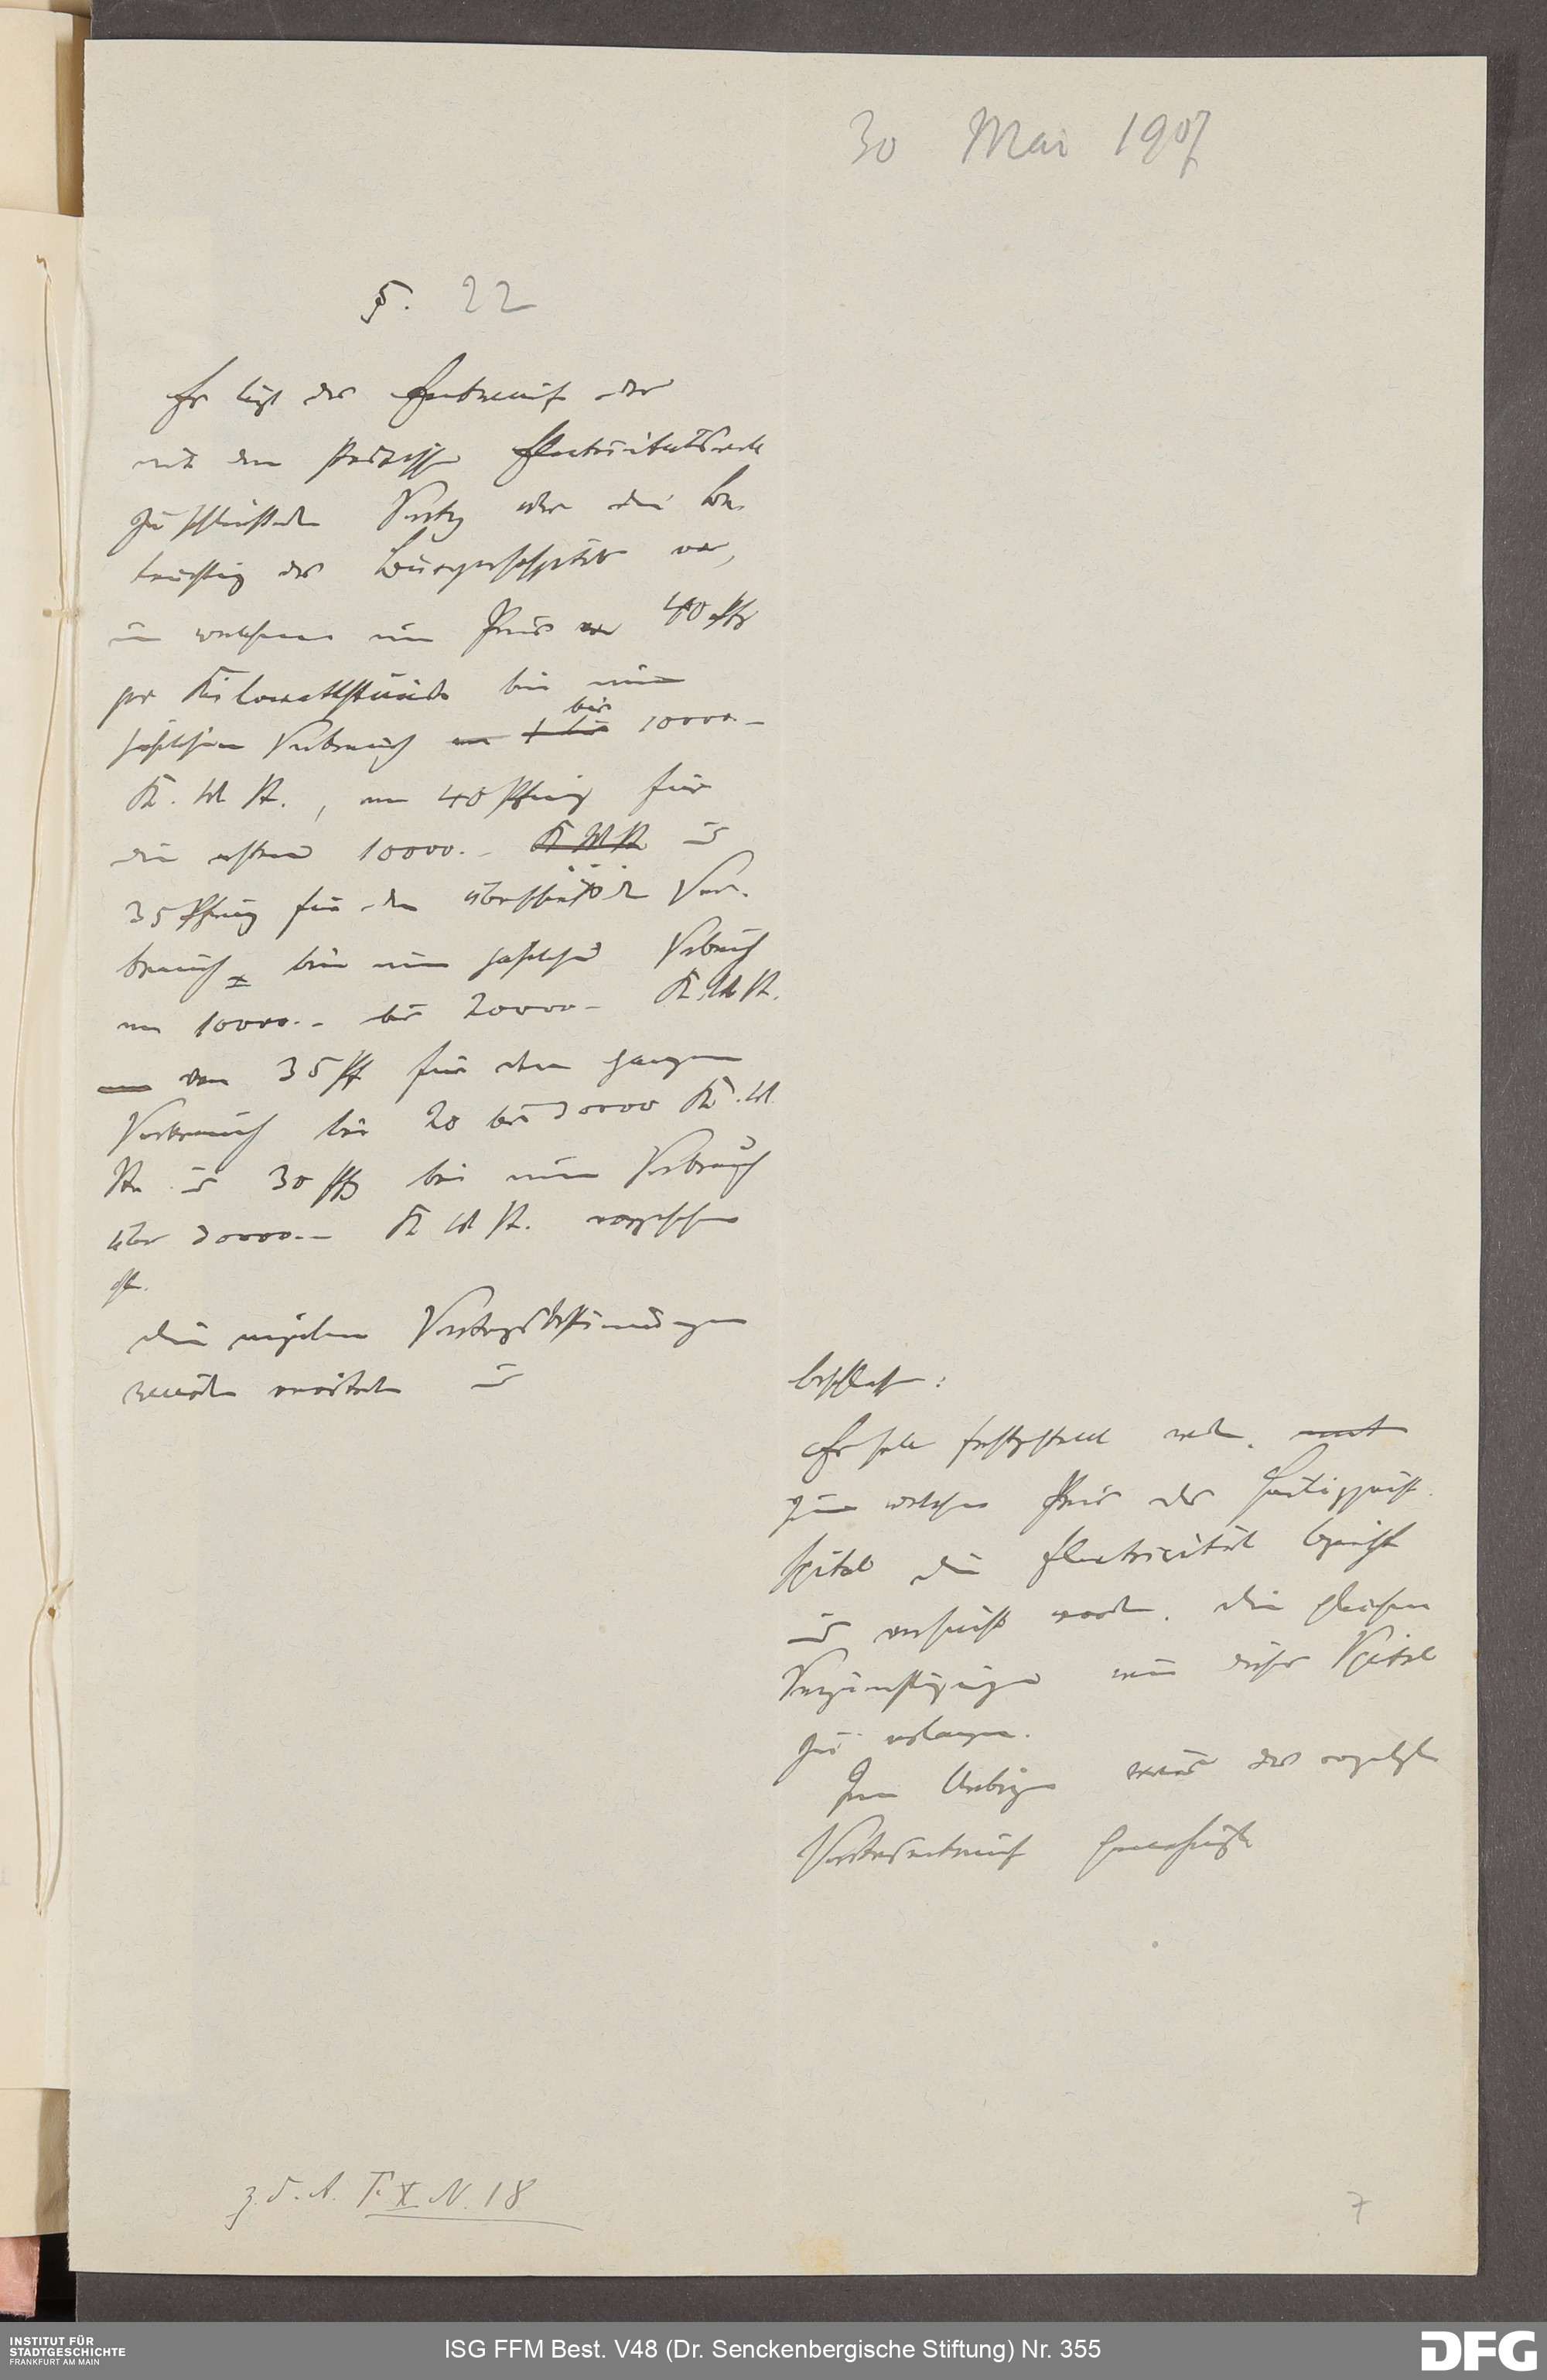 30 Mai 1907
§. 22
Es liegt der Entwurf des
mit dem städtischen Elektricitätswerk
zu schließenden Vertrag über die Be-
leuchtung des Bürgerhospitals vor,
in welchem ein Preis von 40 Pfg
per Kilowattstunde bei einem
jährlichen Verbrauch bis 10000.-
K. W. St., von 40 Pfennig für
die ersten 10000.- K W St und
35 Pfennig für den überschießenden Ver-
brauch bei einem jährlichen Verbrauch
von 10000.- bis 20000.- K. W. St.
von 35 Pf für den ganzen
Verbrauch bei 20 bis 30000 K. W.
St. und 30 Pfg bei einem Verbrauch
über 30000.- K W St. vorgesehen
ist.
Die einzelnen Vertragsbestimmungen
werden erörtert und
beschlossen:
Es soll festgestellt werden, mit
zu welchem Preis das Heiliggeist-
spital die Elektricität bezieht
und versucht werden, die gleichen
Vergünstigungen wie dieses Spital
zu erlangen.
Im Uebrigen wird der vorgelegte
Vertragsentwurf genehmigt
z. d. A. T. X N. 18
7
INSTITUT FÜR
STADTGESCHICHTE
FRANKFURT AM MAIN
ISG FFM Best. V48 (Dr. Senckenbergische Stiftung) Nr. 355
DFG